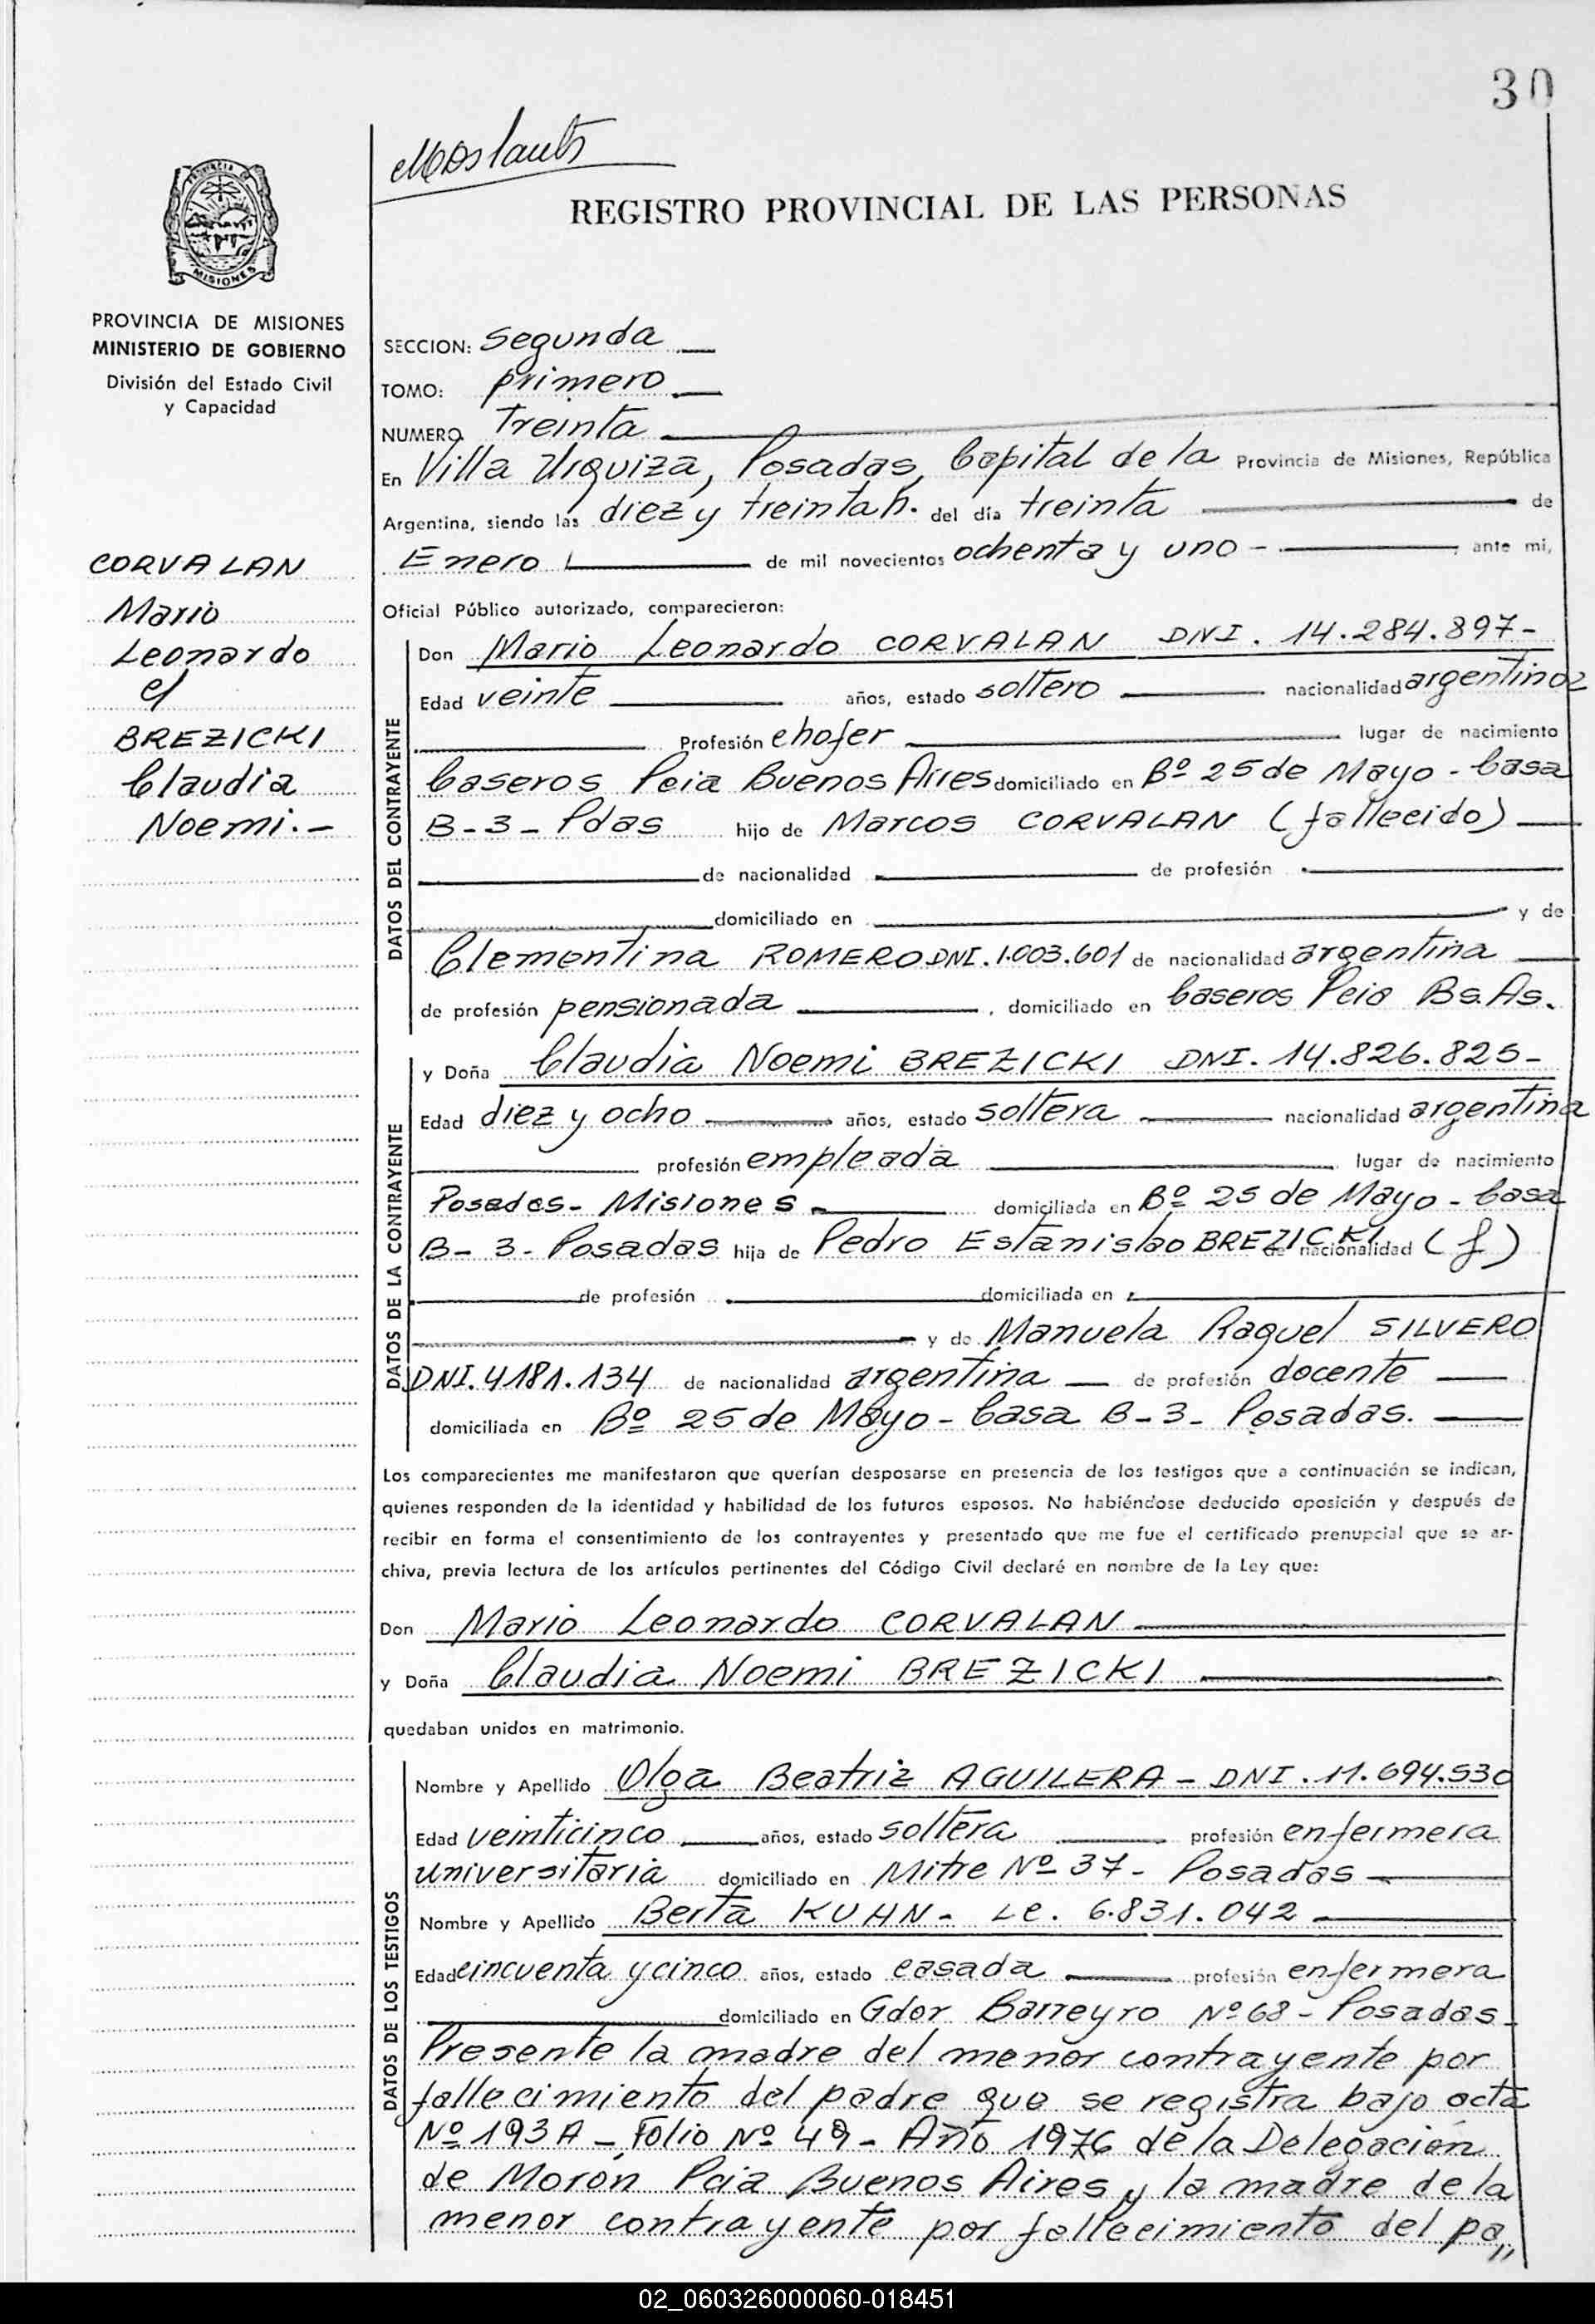 30
REGISTRO PROVINCIAL DE LAS PERSONAS
PROVINCIA DE
MISIONES
PROVINCIA DE MISIONES
MINISTERIO DE GOBIERNO
División del Estado Civil
y Capacidad
CORVALAN
Mario
Leonardo
c/
BREZICKI
Claudia
Noemi.-
SECCION: Segunda
TOMO: primero
NUMERO Treinta
En Villa Urquiza, Posadas, Capital de la Provincia de Misiones, República
Argentina, siendo las diez y treinta h. del día treinta de
Enero de mil novecientos ochenta y uno - , ante mi,
Oficial Público autorizado, comparecieron:
DATOS DEL CONTRAYENTE
Don Mario Leonardo CORVALAN DNI. 14.284.897-
Edad veinte años, estado soltero nacionalidad argentino
Profesión chofer lugar de nacimiento
Caseros Pcia Buenos Aires domiciliado en Bº 25 de Mayo - Casa
B-3- Pdas hijo de Marcos CORVALAN (fallecido)
de nacionalidad de profesión
domiciliado en y de
Clementina ROMERO DNI. 1.003.601 de nacionalidad argentina
de profesión pensionada , domiciliado en Caseros Pcia Bs. As.
DATOS DE LA CONTRAYENTE
y Doña Claudia Noemi BREZICKI DNI. 14.826.825-
Edad diez y ocho años, estado soltera nacionalidad argentina
profesión empleada lugar de nacimiento
Posadas - Misiones - domiciliada en Bº 25 de Mayo - Casa
B- 3- Posadas hija de Pedro Estanislao BREZICKI de nacionalidad (f)
de profesión domiciliada en
y de Manuela Raquel SILVERO
DNI. 4181.134 de nacionalidad argentina de profesión docente
domiciliada en Bº 25 de Mayo - Casa B-3- Posadas.
Los comparecientes me manifestaron que querían desposarse en presencia de los testigos que a continuación se indican,
quienes responden de la identidad y habilidad de los futuros esposos. No habiéndose deducido oposición y después de
recibir en forma el consentimiento de los contrayentes y presentado que me fue el certificado prenupcial que se ar-
chiva, previa lectura de los artículos pertinentes del Código Civil declaré en nombre de la Ley que:
Don Mario Leonardo CORVALAN
y Doña Claudia Noemi BREZICKI
quedaban unidos en matrimonio.
DATOS DE LOS TESTIGOS
Nombre y Apellido Olga Beatriz AGUILERA - DNI. 11.694.530
Edad veinticinco años, estado soltera profesión enfermera
universitaria domiciliado en Mitre Nº 37- Posadas
Nombre y Apellido Berta KUHN - LC. 6.831.042
Edad cincuenta y cinco años, estado casada profesión enfermera
domiciliado en Gdor Barreyro Nº 68 - Posadas
Presente la madre del menor contrayente por
fallecimiento del padre que se registra bajo acta
Nº 193A - Folio Nº 49 - Año 1976 de la Delegación
de Morón Pcia Buenos Aires y la madre de la
menor contrayente por fallecimiento del pa,,
02_060326000060-018451